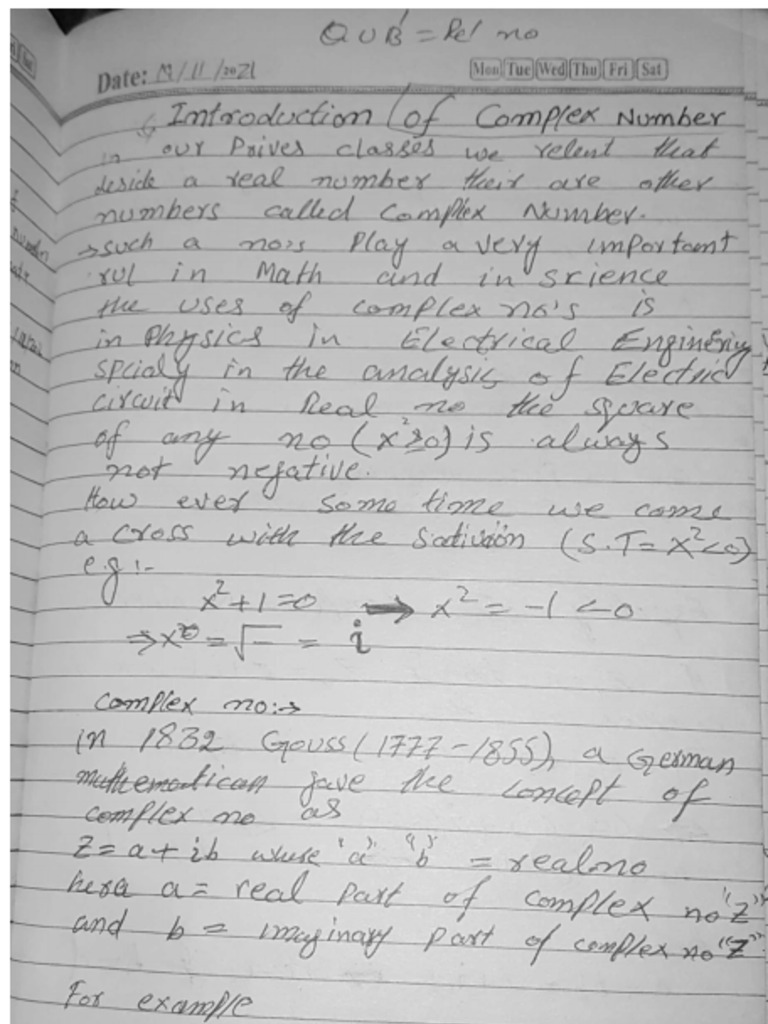 Q U B' = Rel no
Date: 17/11/2021 Mon Tue Wed Thu Fri Sat
Introduction of Complex Number
in our Paives classes we relent that
deside a real number their are other
numbers called Complex Number.
→ such a no,s Play a very important
rul in Math and in science
the uses of complex no's is
in Physics in Electrical Enginering
spcialy in the analysis of Electric
circuit in Real no the square
of any no (x²≥0) is always
not negative.
How ever some time we come
a cross with the (S.T = x²<0)
e.g :-
x²+1=0 ⟹ x² = -1 <0
⇒ x = √− = i
complex no:→
in 1832 Gouss (1777-1855), a German
mathematican gave the concept of
complex no as
Z = a + ib whese 'a' 'b' = real no
hera a = real part of complex no "Z"
and b = imaginary part of complex no "Z"
For example